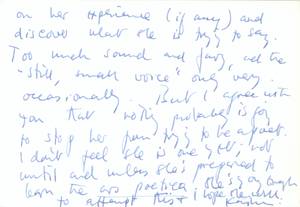 on her experience (if any) and
discover what she is trying to say.
Too much sound and fury, and the
"still, small voice" only very
occasionally. But I agree with
you that nothing probable is going
to stop her from trying to be a poet.
I don't feel she is one yet: not
until and unless she's prepared to
learn the ars poetica; she's young enough
to attempt this & I hope she will.